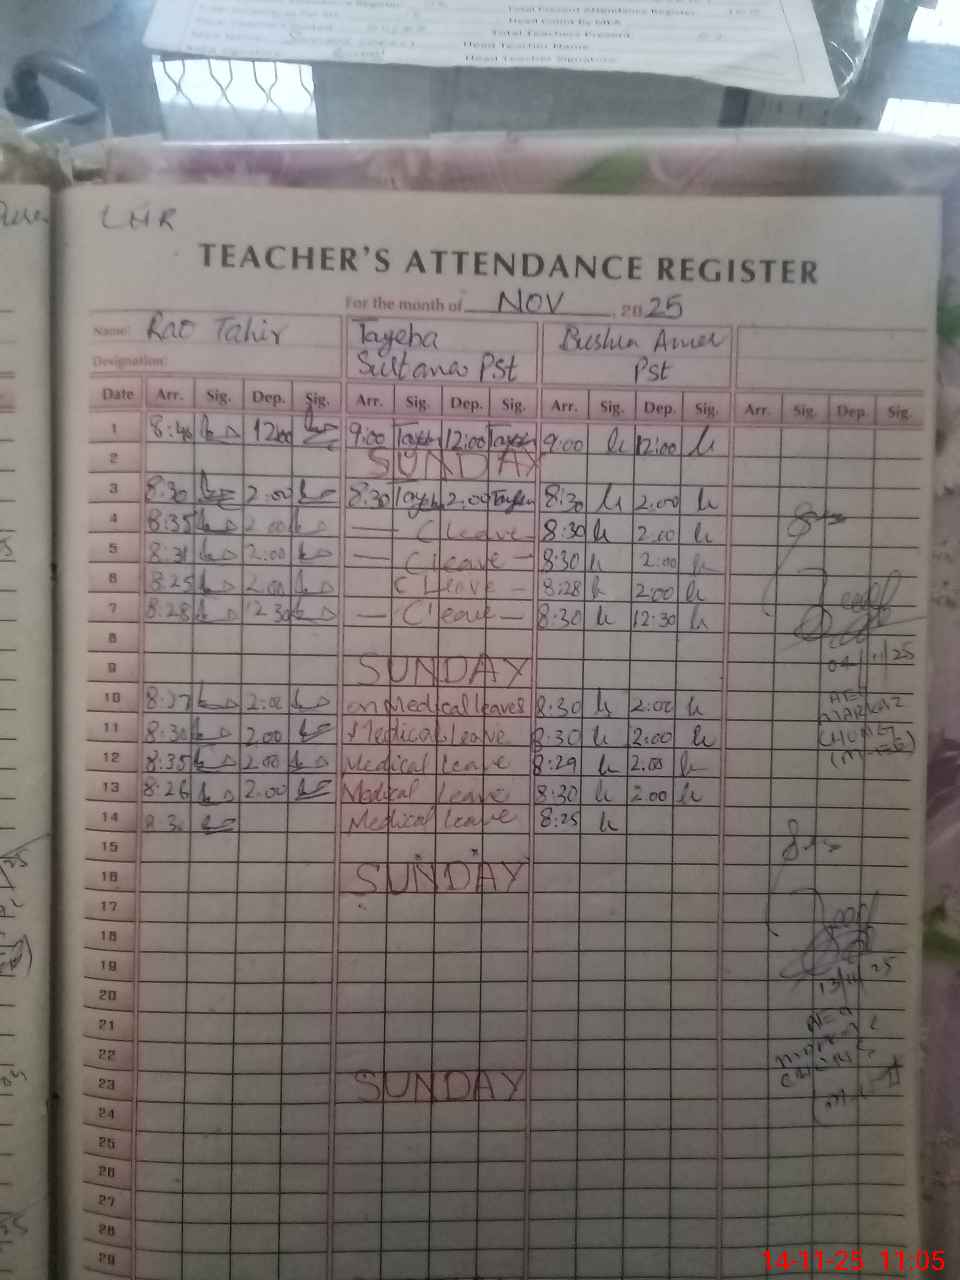 Total Present Attendance Register
Head Count By MEA
Total Teachers Present
Head Teacher Name
Head Teacher Signature
LHR
TEACHER'S ATTENDANCE REGISTER
For the month of NOV, 2025
Name: Rao Tahir Tayeba Bushra Amer
Designation: Sultana PST PST
Date Arr. Sig. Dep. Sig. Arr. Sig. Dep. Sig. Arr. Sig. Dep. Sig. Arr. Sig. Dep. Sig.
1 8:40 12:00 9:00 Tayeba 12:00 Tayeba 9:00 12:00
2 SUNDAY
3 8:30 2:00 8:30 Tayeba 2:00 Tayeba 8:30 2:00
4 8:35 2:00 — C leave - 8:30 2:00
5 8:31 2:00 — C leave - 8:30 2:00
6 8:25 2:00 C Leave - 8:28 2:00
7 8:28 12:30 — C leave - 8:30 12:30
8
9 SUNDAY 04/11/25
10 8:27 2:00 on Medical leaves 8:30 2:00
11 8:30 2:00 Medical leave 8:30 2:00
12 8:35 2:00 Medical leave 8:29 2:00
13 8:26 2:00 Medical leave 8:30 2:00
14 8:30 Medical leave 8:25
15
16 SUNDAY
17
18
19 13/11/25
20
21
22
23 SUNDAY
24
25
26
27
28
29
14-11-25 11:05